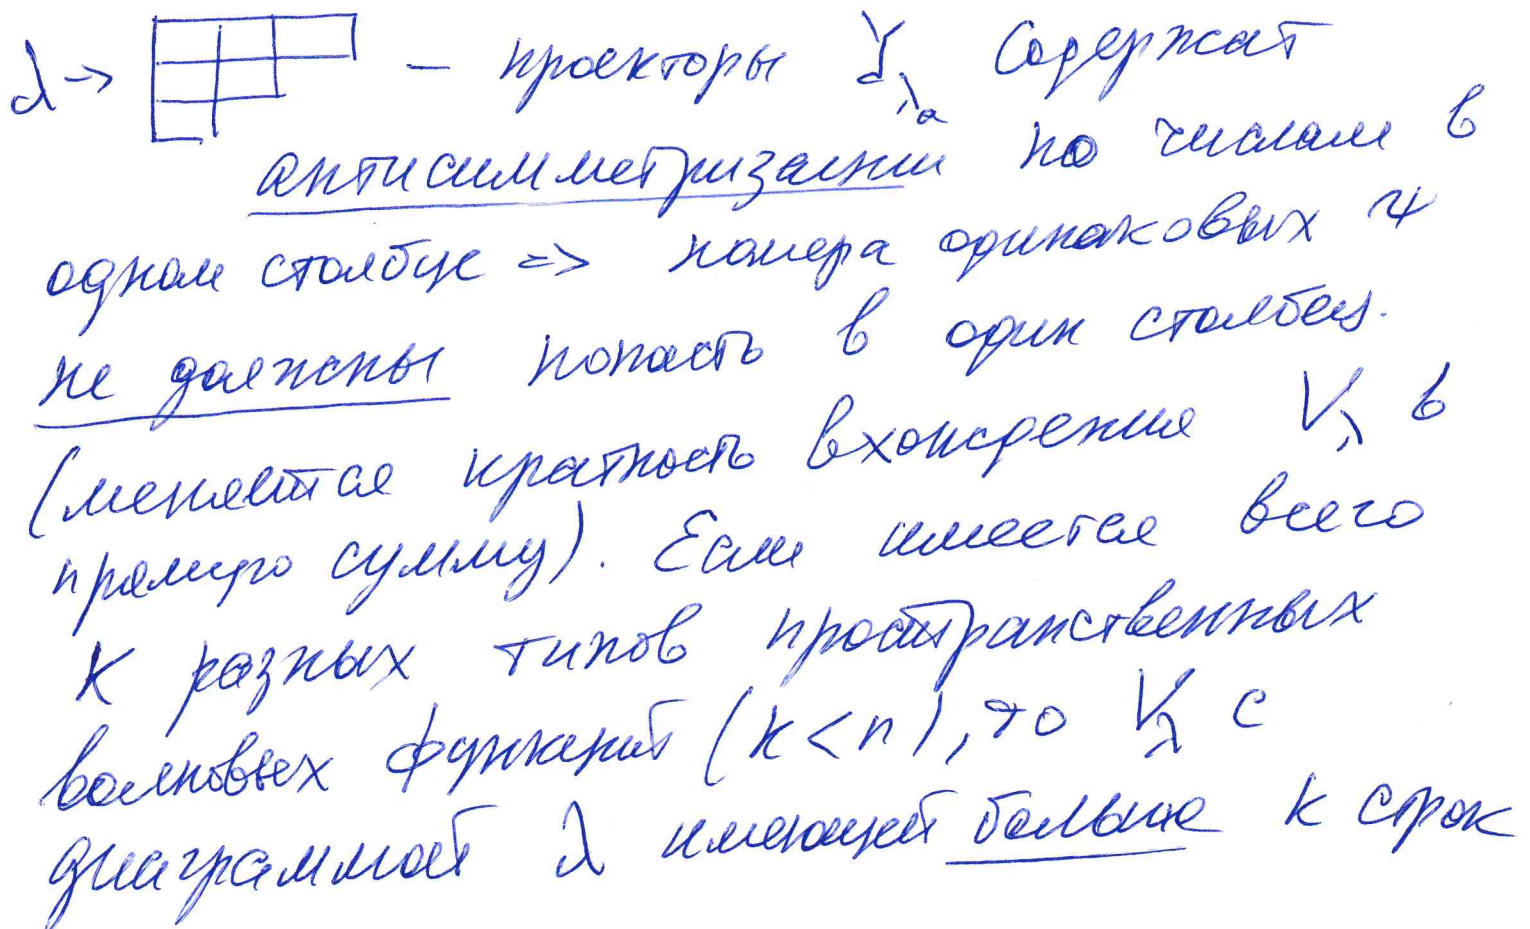 λ → — проекторы Y_{λ_a} содержат
антисимметризации по числам в
одном столбце => номера одинаковых ψ
не должны попасть в один столбец.
(меняется кратность вхождения V_λ в
прямую сумму). Если имеется всего
k разных типов пространственных
волновых функций (k < n), то V_λ с
диаграммой λ имеющей больше k строк